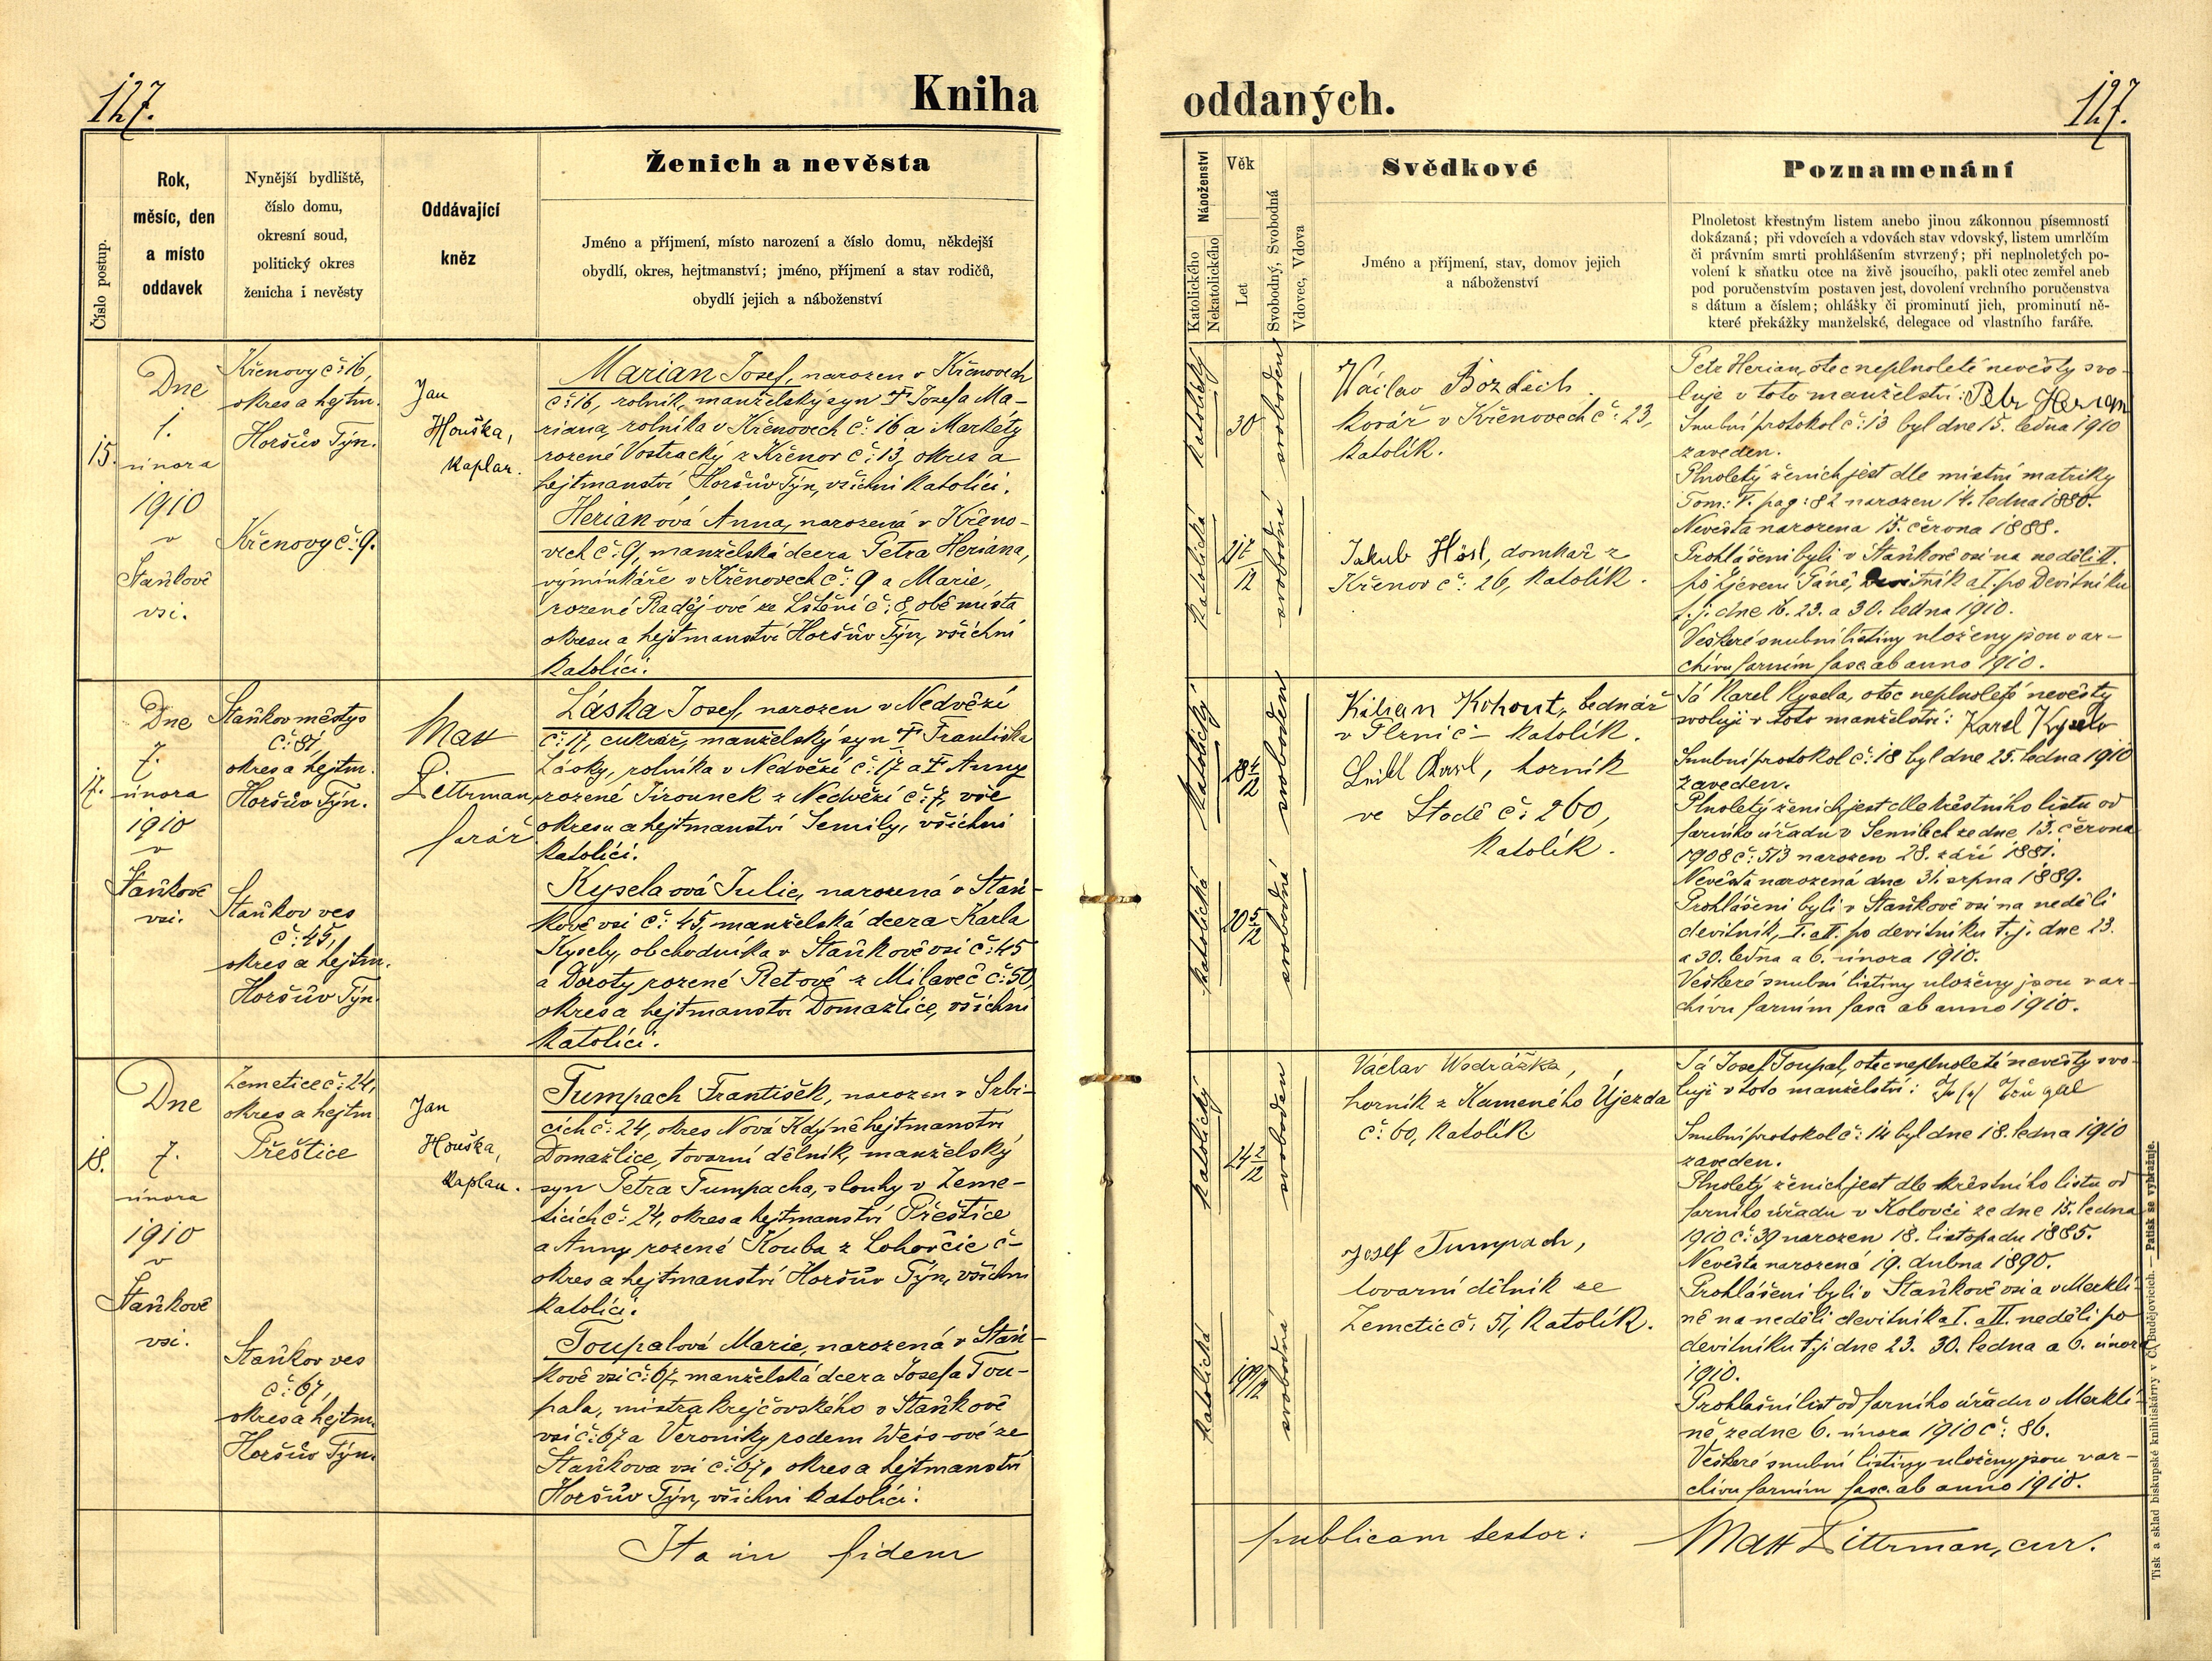 127.
Kniha
Číslo postup.
Rok,
měsíc, den
a místo
oddavek
Nynější bydliště,
číslo domu,
okresní soud,
politický okres
ženicha i nevěsty
Oddávající
kněz
Ženich a nevěsta
Jméno a příjmení, místo narození a číslo domu, někdejší
obydlí, okres, hejtmanství; jméno, příjmení a stav rodičů,
obydlí jejich a náboženství
15.
Dne
1.
února
1910
v
Staňkově
vsi.
Křenovy č: 16,
okres a hejtm.
Horšův Týn.
Křenovy č: 9.
Jan
Houška,
kaplan.
Marian Josef, narozen v Křenovech
č: 16, rolník, manželský syn † Josefa Ma-
riana, rolníka v Křenovech č: 16 a Markéty
rozené Vostracký z Křenov č: 13, okres a
hejtmanství Horšův Týn, všichni katolíci.
Herianová Anna, narozená v Křeno-
vech č: 9, manželská dcera Petra Heriana,
výminkáře v Křenovech č: 9 a Marie,
rozené Radějové ze Lštění č: 8, obě místa
okresu a hejtmanství Horšův Týn, všichni
katolíci.
17.
Dne
7.
února
1910
v
Staňkově
vsi.
Staňkov městys
č: 81,
okres a hejtm.
Horšův Týn.
Staňkov ves
č: 45,
okres a hejtm.
Horšův Týn.
Mat
Dittrman,
farář
Láska Josef, narozen v Nedvězí
č: 17, cukrář, manželský syn † Františka
Lásky, rolníka v Nedvězí č: 17 a † Anny
rozené Jirounek z Nedvězí č: 7, vše
okresu a hejtmanství Semily, všichni
katolíci.
Kyselaová Julie, narozená v Staň-
kově vsi č: 45, manželská dcera Karla
Kysely, obchodníka v Staňkově vsi č: 45
a Doroty rozené Retové z Milaveč č: 50,
okres a hejtmanství Domažlice, všichni
katolíci.
18.
Dne
7.
února
1910
v
Staňkově
vsi.
Zemetice č: 24,
okres a hejtm
Přeštice
Staňkov ves
č: 67,
okres a hejtm.
Horšův Týn.
Jan
Houška,
kaplan.
Tumpach František, narozen v Srbi-
cích č: 24, okres Nová Kdýně hejtmanství
Domažlice, tovární dělník, manželský
syn Petra Tumpacha, slouhy v Zeme-
ticích č: 24, okres a hejtmanství Přeštice
a Anny rozené Kouba z Lohovčic č-
okres a hejtmanství Horšův Týn, všichni
katolíci.
Toupalová Marie, narozená v Staň-
kově vsi č: 67, manželská dcera Josefa Tou-
pala, mistra krejčovského v Staňkově
vsi č: 67 a Veroniky rodem Weis-ové ze
Staňkova vsi č: 67, okres a hejtmanství
Horšův Týn, všichni katolíci.
Ita in fidem
oddaných.
127.
Náboženství
Katolického
Nekatolického
Věk
Let
Svobodný, Svobodná
Vdovec, Vdova
Svědkové
Jméno a příjmení, stav, domov jejich
a náboženství
Poznamenání
Plnoletost křestným listem anebo jinou zákonnou písemností
dokázaná; při vdovcích a vdovách stav vdovský, listem umrlčím
či právním smrti prohlášením stvrzený; při neplnoletých po-
volení k sňatku otce na živě jsoucího, pakli otec zemřel aneb
pod poručenstvím postaven jest, dovolení vrchního poručenstva
s dátum a číslem; ohlášky či prominutí jich, prominutí ně-
které překážky manželské, delegace od vlastního faráře.
katolický
30
svoboden
katolická
svobodná
Václav Bozděch
kovář v Křenovech č: 23,
katolík.
Jakub Hösl, domkař z
Křenov č: 26, katolík.
Petr Herian, otec neplnoleté nevěsty svo-
luje v toto manželství: Petr Herian
Snubní protokol č: 13 byl dne 15. ledna 1910
zaveden.
Plnoletý ženich jest dle místní matriky
Tom: V. pag: 82 narozen 14. ledna 1880.
Nevěsta narozena 15. června 1888.
Prohlášeni byli v Staňkově vsi na neděli II.
po Zjevení Páně, Devítník a I. po Devítníku
t. j. dne 16. 23. a 30. ledna 1910.
Veškeré snubní listiny uloženy jsou v ar-
chivu farním fasc. ab anno 1910.
katolický
28 4/12
svoboden
katolická
20 5/12
svobodná
Kilian Kohout, bednář
v Plznič- katolík.
Karl, horník
ve Stodě č: 260,
katolík.
Já Karel Kysela, otec neplnoleté nevěsty
svoluji v toto manželství: Karel Kysela
Snubní protokol č: 18 byl dne 25. ledna 1910
zaveden.
Plnoletý ženich jest dle křestního listu od
farního úřadu v Semilech ze dne 13. června
1908 č: 513 narozen 28. září 1881.
Nevěsta narozená dne 31. srpna 1889.
Prohlášeni byli v Staňkově vsi na neděli
devítník, I. a II. po devítníku t. j. dne 23.
a 30. ledna a 6. února 1910.
Veškeré snubní listiny uloženy jsou v ar-
chivu farním fasc ab anno 1910.
katolický
24 2/12
svoboden
katolická
svobodná
Václav Wodrážka,
horník z Kameného Újezda
č: 60, katolík
Josef Tumpach,
tovární dělník ze
Zemetic č: 51, katolík.
Já Josef Toupal, otec neplnoleté nevěsty svo-
luji v toto manželství:
Snubní protokol č: 14 byl dne 18. ledna 1910
zaveden.
Plnoletý ženich jest dle křestního listu od
farního úřadu v Kolovči ze dne 15. ledna
1910 č: 39 narozen 18. listopadu 1885.
Nevěsta narozená 19. dubna 1890.
Prohlášeni byli v Staňkově vsi a v Merklí-
ně na neděli devítník a I. a II. neděli po
devítníku t. j. dne 23. 30. ledna a 6. února
1910.
Prohlašní list od farního úřadu v Merklí-
ně, ze dne 6. února 1910 č: 86.
Veškeré snubní listiny uloženy jsou v ar-
chivu farním fasc. ab anno 1910.
publicam testor:
Mat Dittrman, cur.
Tisk a sklad biskupské knihtiskárny v Č. Budějovicích. — Patisk se vyhražuje.